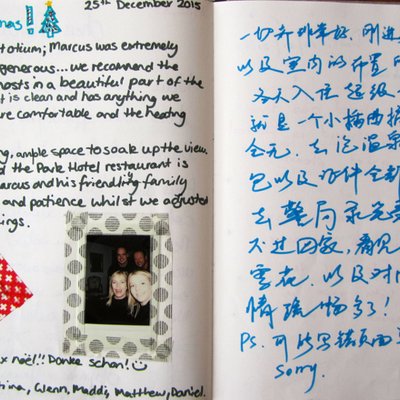 25th December 2015
mas!!
Marcus was extremely
generous... we recommend the
hosts in a beautiful part of the
t is clean and has anything we
re comfortable and the heating
ample space to soak up the view.
d the Park Hotel restaurant is
arcus and his friendling family
and patience whilst we adjusted
ings.
x noël!! Danke schön!
tina, Glenn, Maddi, Matthew, Daniel.
一切都非常好,刚进
以及室内的布置
冬天入住超级
就是一个小插曲
去泡温泉
包以及证件全
去警局录
不过回家,看见
雪花,以及对
情绪畅多了!
Ps. 可能写错页面
Sorry.